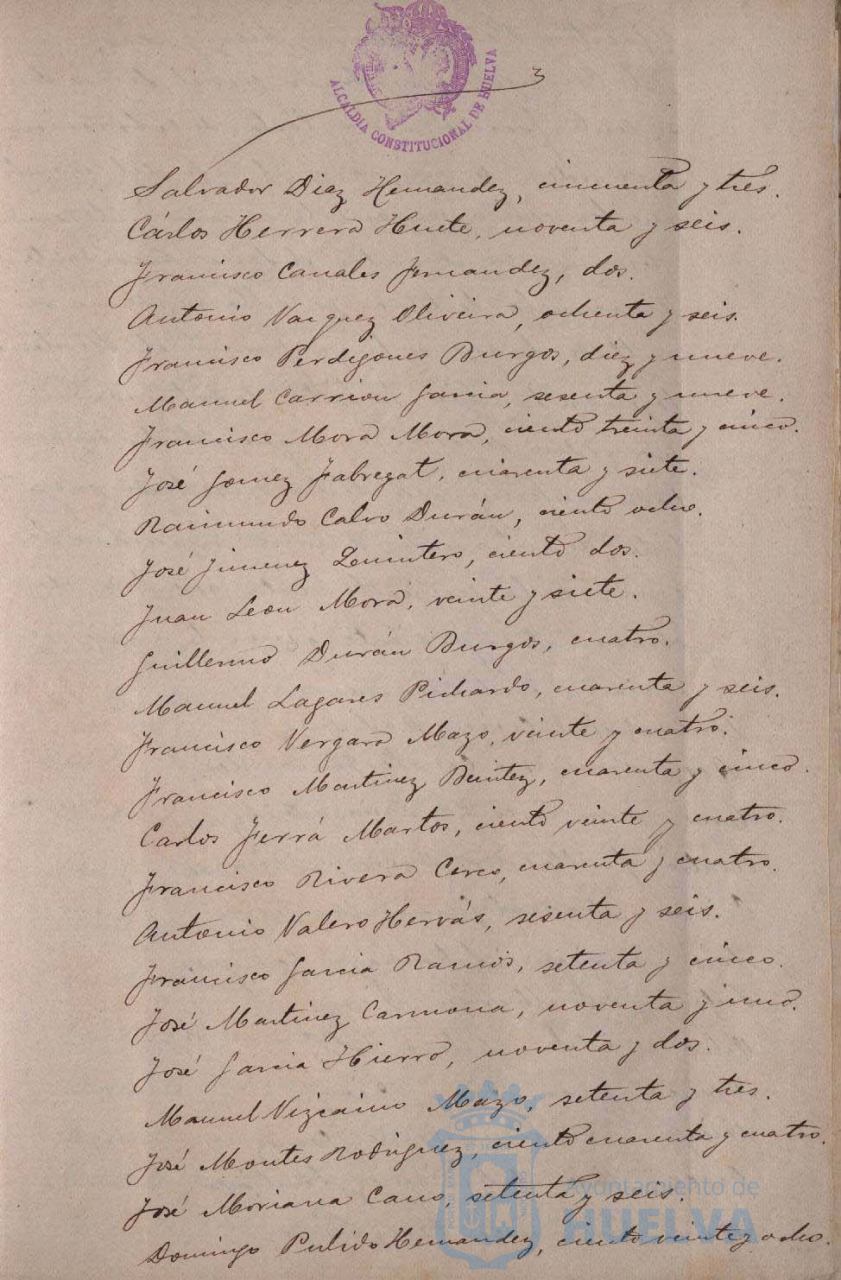 3
ALCALDIA CONSTITUCIONAL DE HUELVA
Salvador Diaz Hernandez, cincuenta y tres.
Cárlos Herrera Huete, noventa y seis.
Francisco Canales Fernandez, dos.
Antonio Vazquez Oliveira, ochenta y seis.
Francisco Perdigones Burgos, diez y nueve.
Manuel Carrion Garcia, sesenta y nueve.
Francisco Mora Mora, ciento treinta y cinco.
José Gomez Fabregat, cuarenta y siete.
Raimundo Calvo Durán, ciento ocho.
José Jimenez Quintero, ciento dos.
Juan Leon Mora, veinte y siete.
Guillermo Durán Burgos, cuatro.
Manuel Lagares Pichardo, cuarenta y seis.
Francisco Vergara Mazo, veinte y cuatro.
Francisco Martinez Benitez, cuarenta y cinco.
Carlos Ferrá Martos, ciento veinte y cuatro.
Francisco Rivera Cerco, cuarenta y cuatro.
Antonio Valero Hervás, sesenta y seis.
Francisco Garcia Ramos, setenta y cinco.
José Martinez Carmona, noventa y uno.
José Garcia Hierro, noventa y dos.
Manuel Vizcaino Mazo, setenta y tres.
José Montes Rodriguez, ciento cuarenta y cuatro.
José Moriana Cano, setenta y seis.
Ayuntamiento de
HUELVA
Domingo Pulido Hernandez, ciento veinte y ocho.